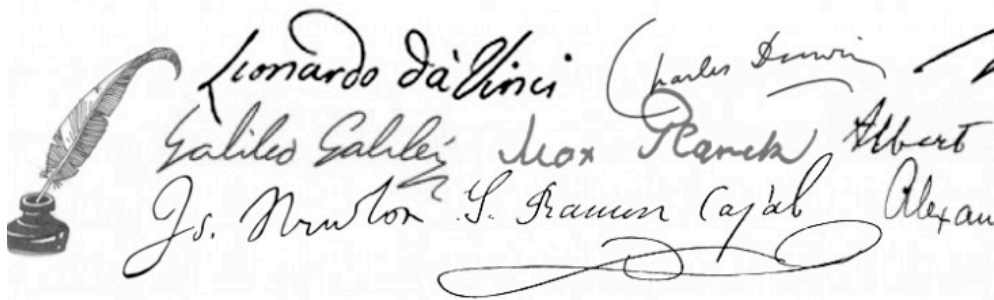 Leonardo da Vinci Charles Darwin
Galileo Galilei Max Planck Albert
Is. Newton S. Ramon Cajal Alexan